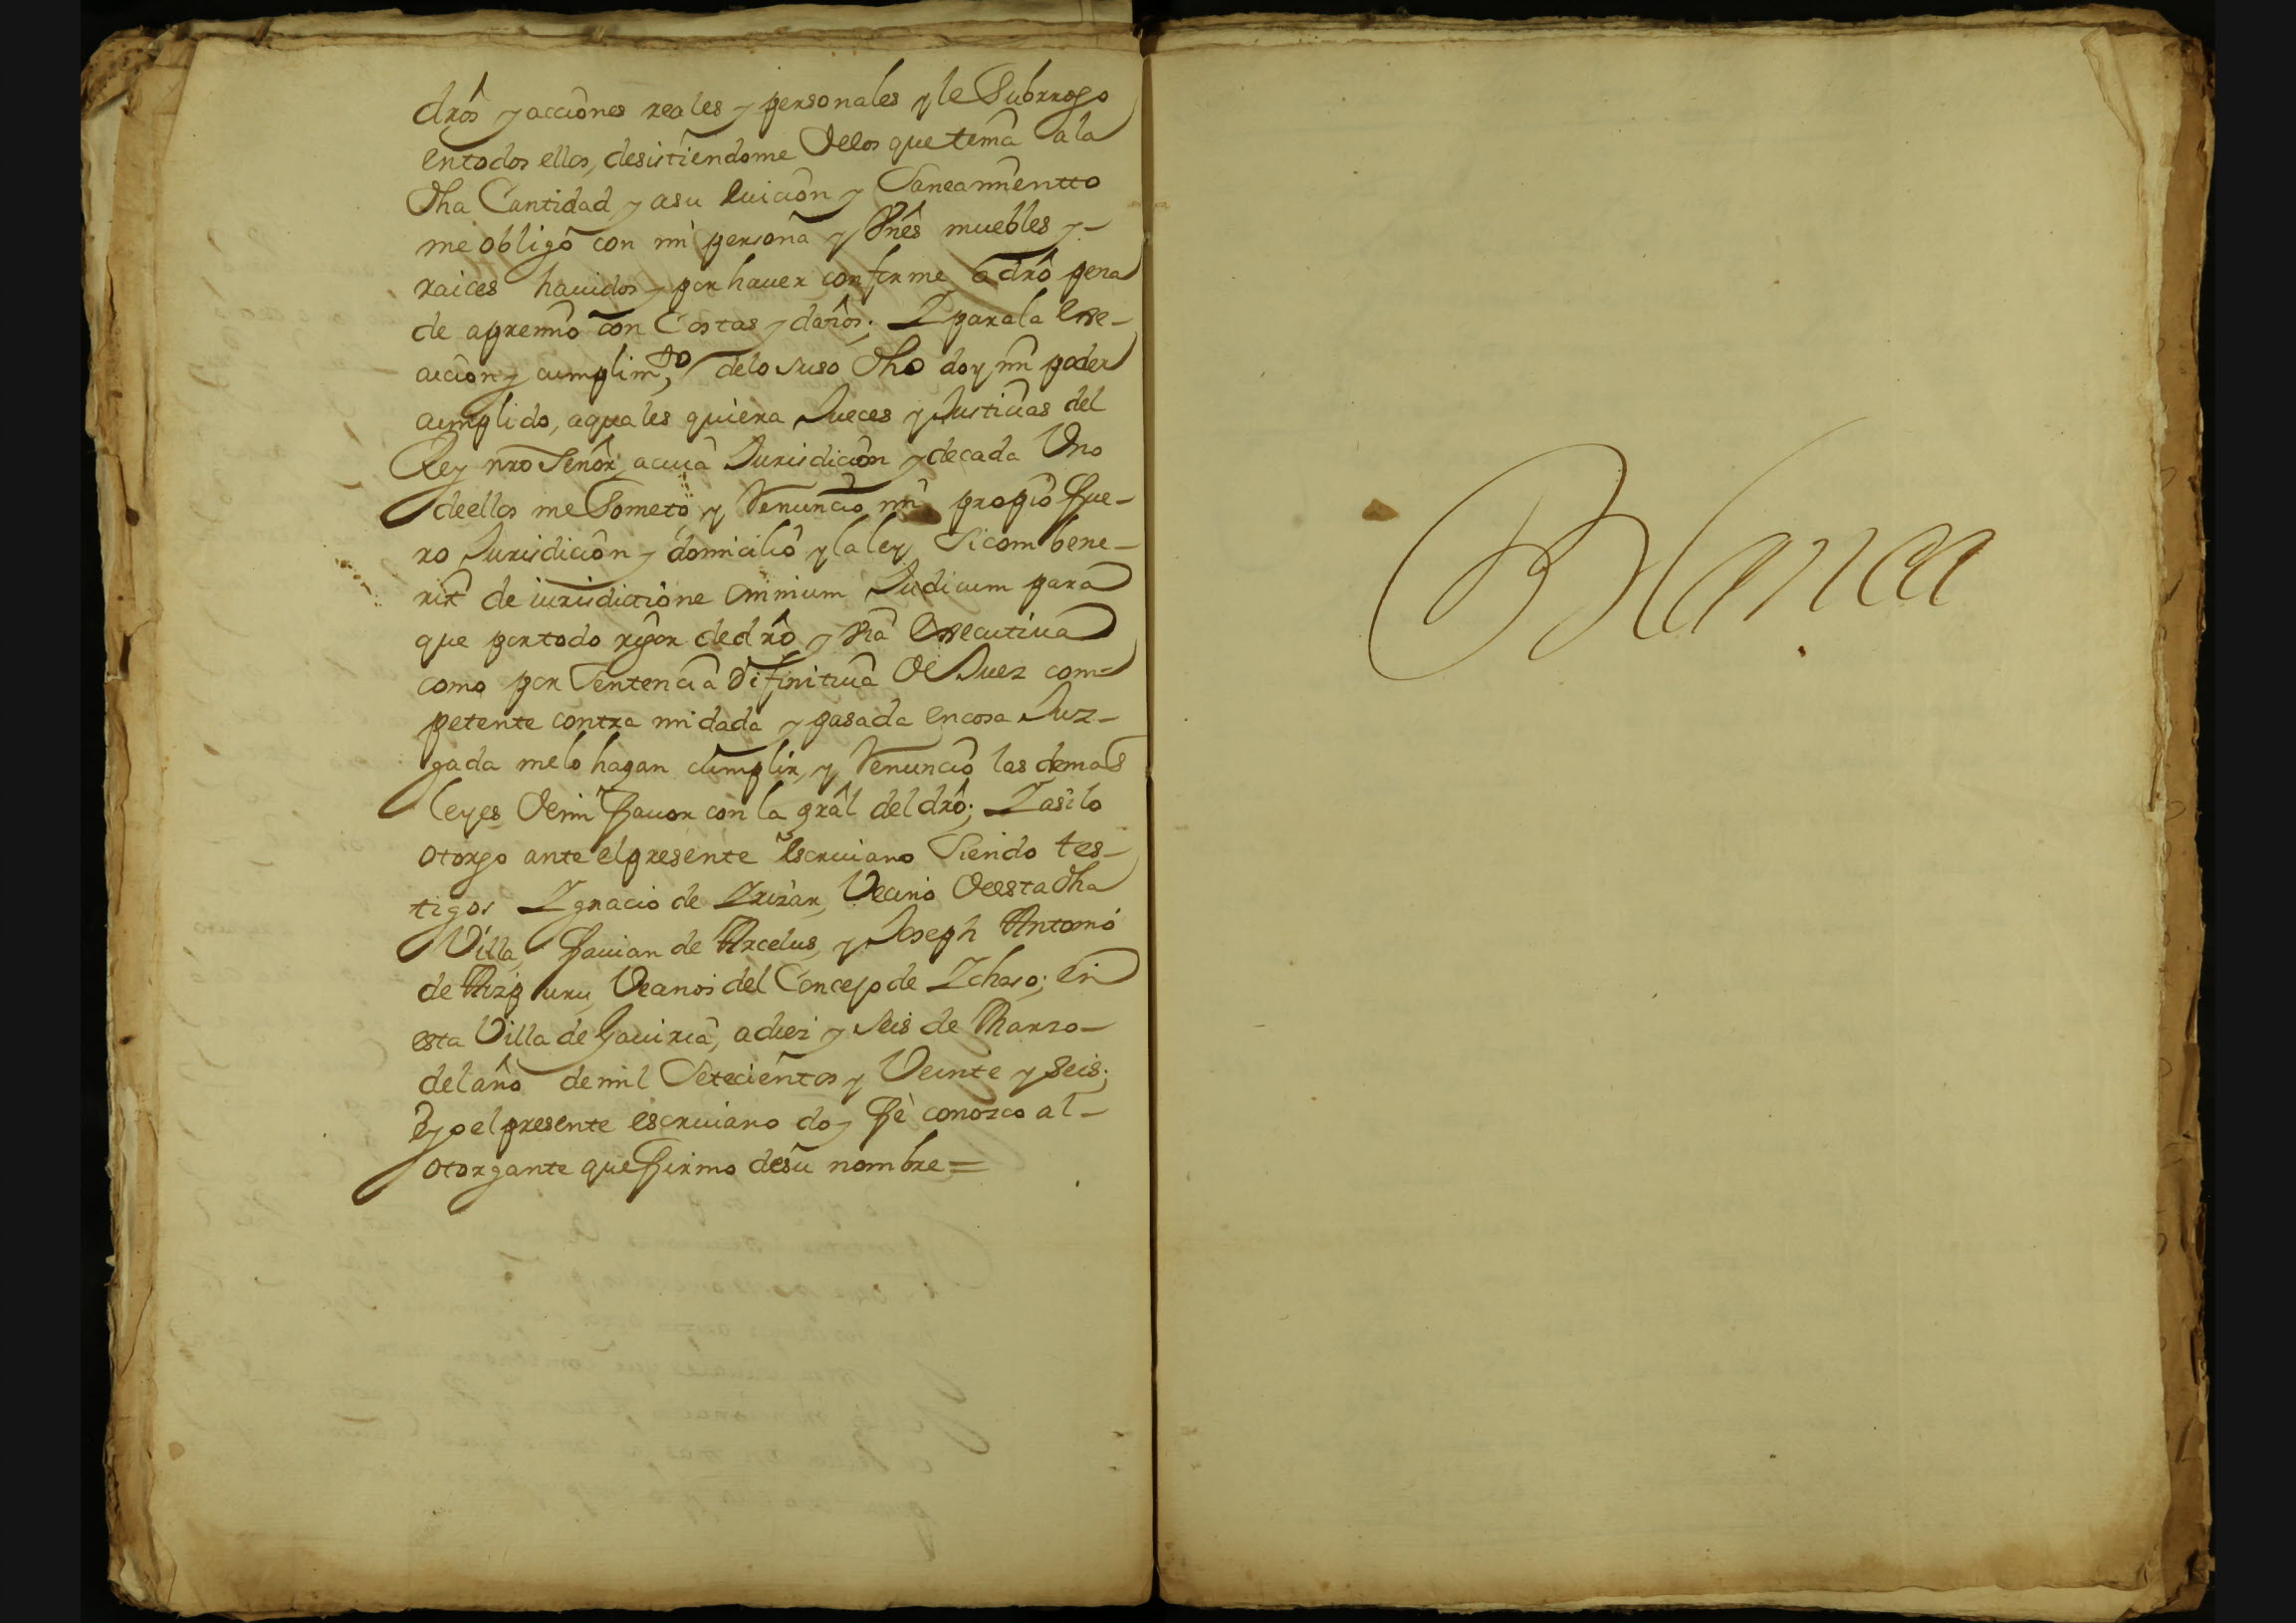 drôs y acciones reales y personales y le Subrrogo
en todos ellos, desistiendome de los que tenia a la
dha Cantidad y a su luicion y Saneamientto
me obligo con mi persona y Vnês muebles y-
raices hauidos y por hauer conforme a drô pena
de apremio con Costas y daños; Y para la Exe-
cucion y cumplimto de lo suso dho doy mi poder
cumplido, a quales quiera Jueces y Justicias del
Rey nro Señor, a cuia Jurisdicion y de cada Uno
de ellos me Someto, y Renuncio mi propio fue-
ro Jurisdicion y domicilio y la ley Sicombene-
rit de iurisdictione omnium Judicum para
que por todo rigor de drô y Via Executiua
como por Sentencia difinitiua de Juez com=
petente contra mi dada y pasada en cosa Juz-
gada me lo hagan cumplir, y Renuncio las demas
leyes de mi fauor con la grâl del drô; Y asi lo
otorgo ante el presente Escriuano Siendo tes-
tigos Ygnacio de Yrizar, Vecino de esta dha
Villa, fauian de Arcelus, y Joseph Antonio
de Aizpuru, Vecinos del Concejo de Ychaso; En
esta Villa de Gauiria, a diez y seis de Marzo-
del año de mil Setecientos y Veinte y seis;
E yo el presente escriuano doy fè conozco al-
otorgante que firmo de su nombre=
Blanca